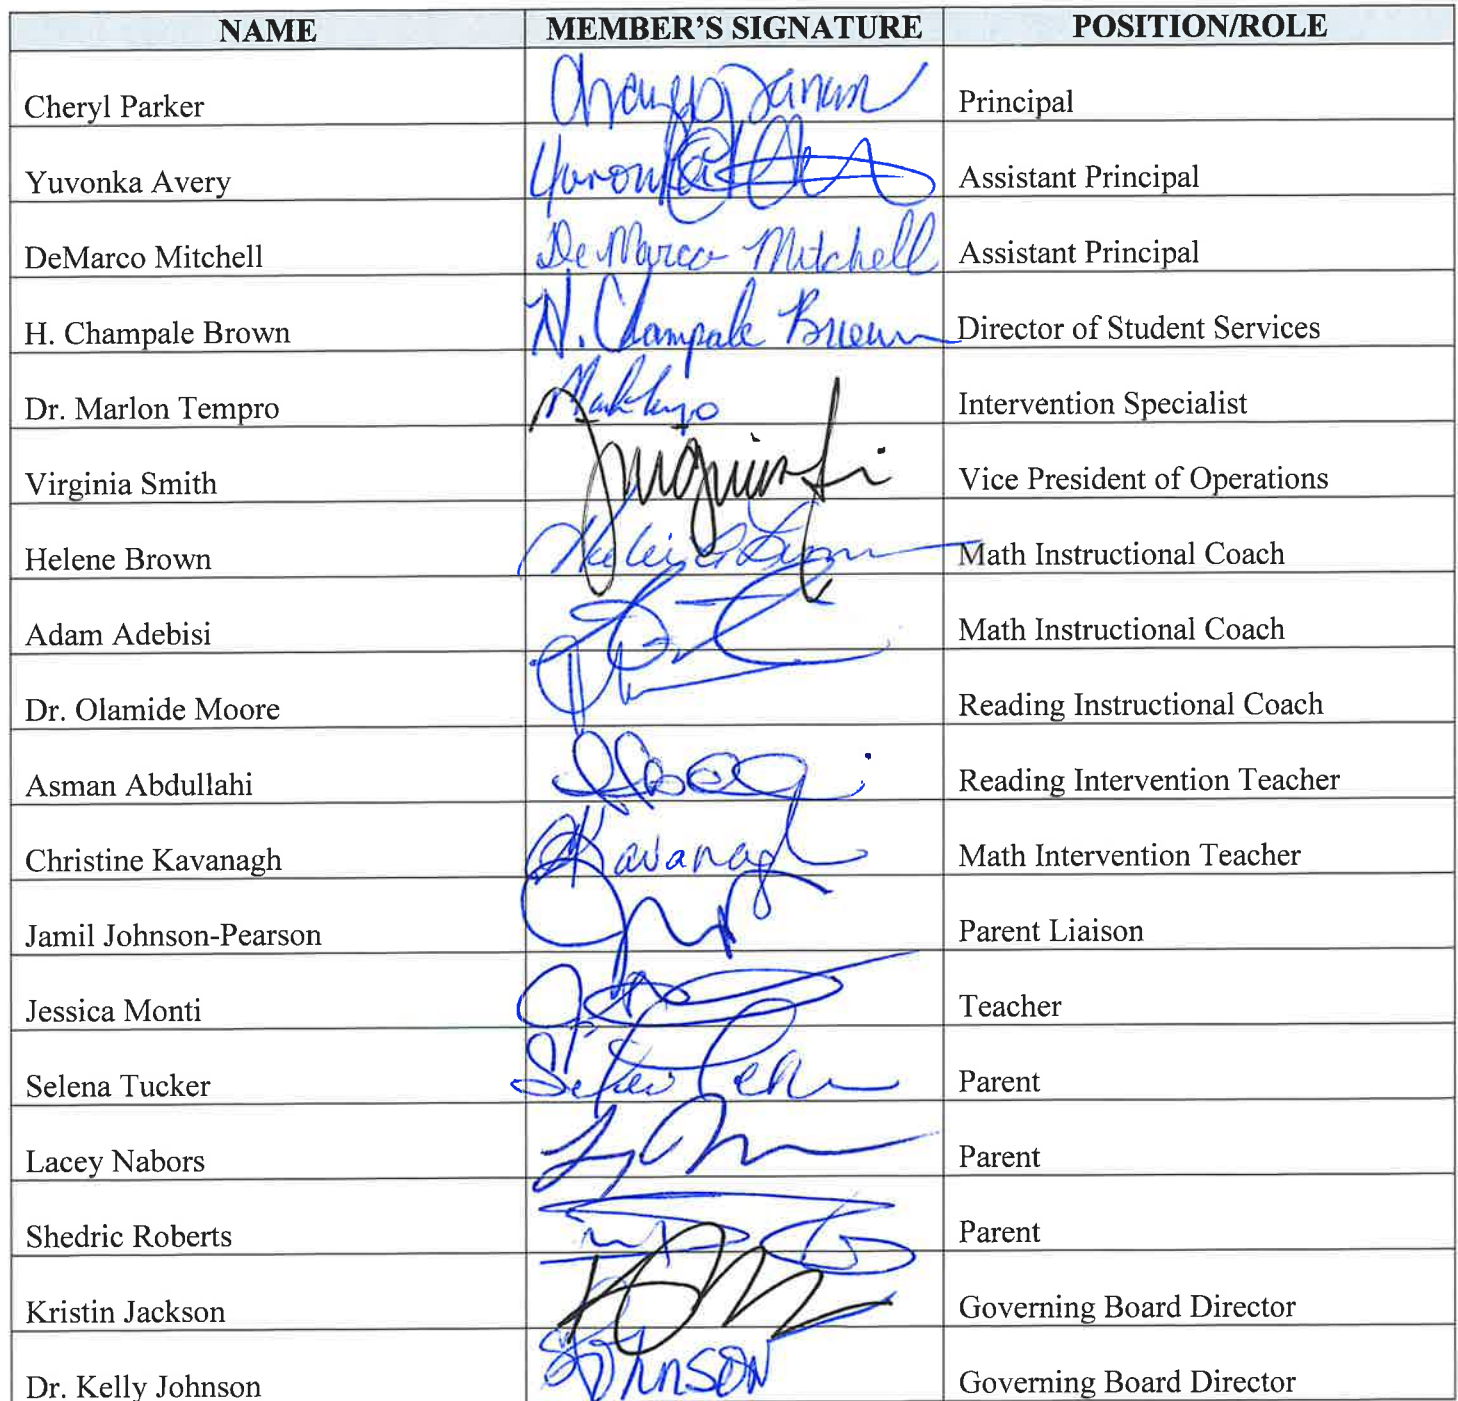 NAME MEMBER'S SIGNATURE POSITION/ROLE
Cheryl Parker Principal
Yuvonka Avery Assistant Principal
DeMarco Mitchell DeMarco Mitchell Assistant Principal
H. Champale Brown H. Champale Brown Director of Student Services
Dr. Marlon Tempro Intervention Specialist
Virginia Smith Vice President of Operations
Helene Brown Math Instructional Coach
Adam Adebisi Math Instructional Coach
Dr. Olamide Moore Reading Instructional Coach
Asman Abdullahi Reading Intervention Teacher
Christine Kavanagh Kavanagh Math Intervention Teacher
Jamil Johnson-Pearson Parent Liaison
Jessica Monti Teacher
Selena Tucker Parent
Lacey Nabors Parent
Shedric Roberts Parent
Kristin Jackson Governing Board Director
Dr. Kelly Johnson JOHNSON Governing Board Director